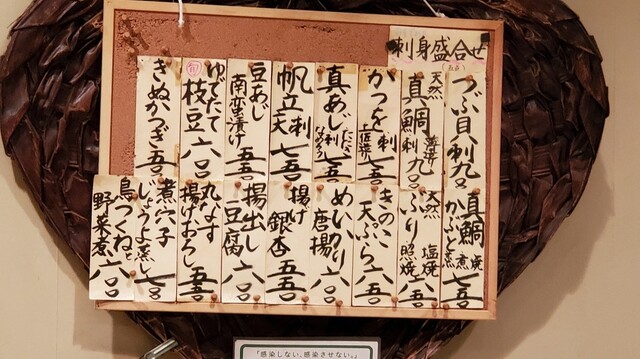 刺身盛合せ
つぶ貝刺 九〇
天然
真鯛
薄造り
刺 九〇
かつを
刺
七五
真あじ
たたき
刺
なめろう
七五
帆立
刺
天
七五
豆あじ
南蛮漬け
五五
旬
ゆでたて
枝豆 六〇
きぬかつぎ 五〇
真鯛
焼
かぶと煮
七五
天然
ぶり
塩焼
照焼
六五
きのこ
天ぷら
六五
めいカリ
唐揚 六〇
揚げ
銀杏
五五
揚出し
豆腐
六〇
丸なす
揚げおろし
五五
煮穴子
じょうよ蒸し
七〇
鳥つくねと
野菜煮
六〇〇
「感染しない、感染させない。」